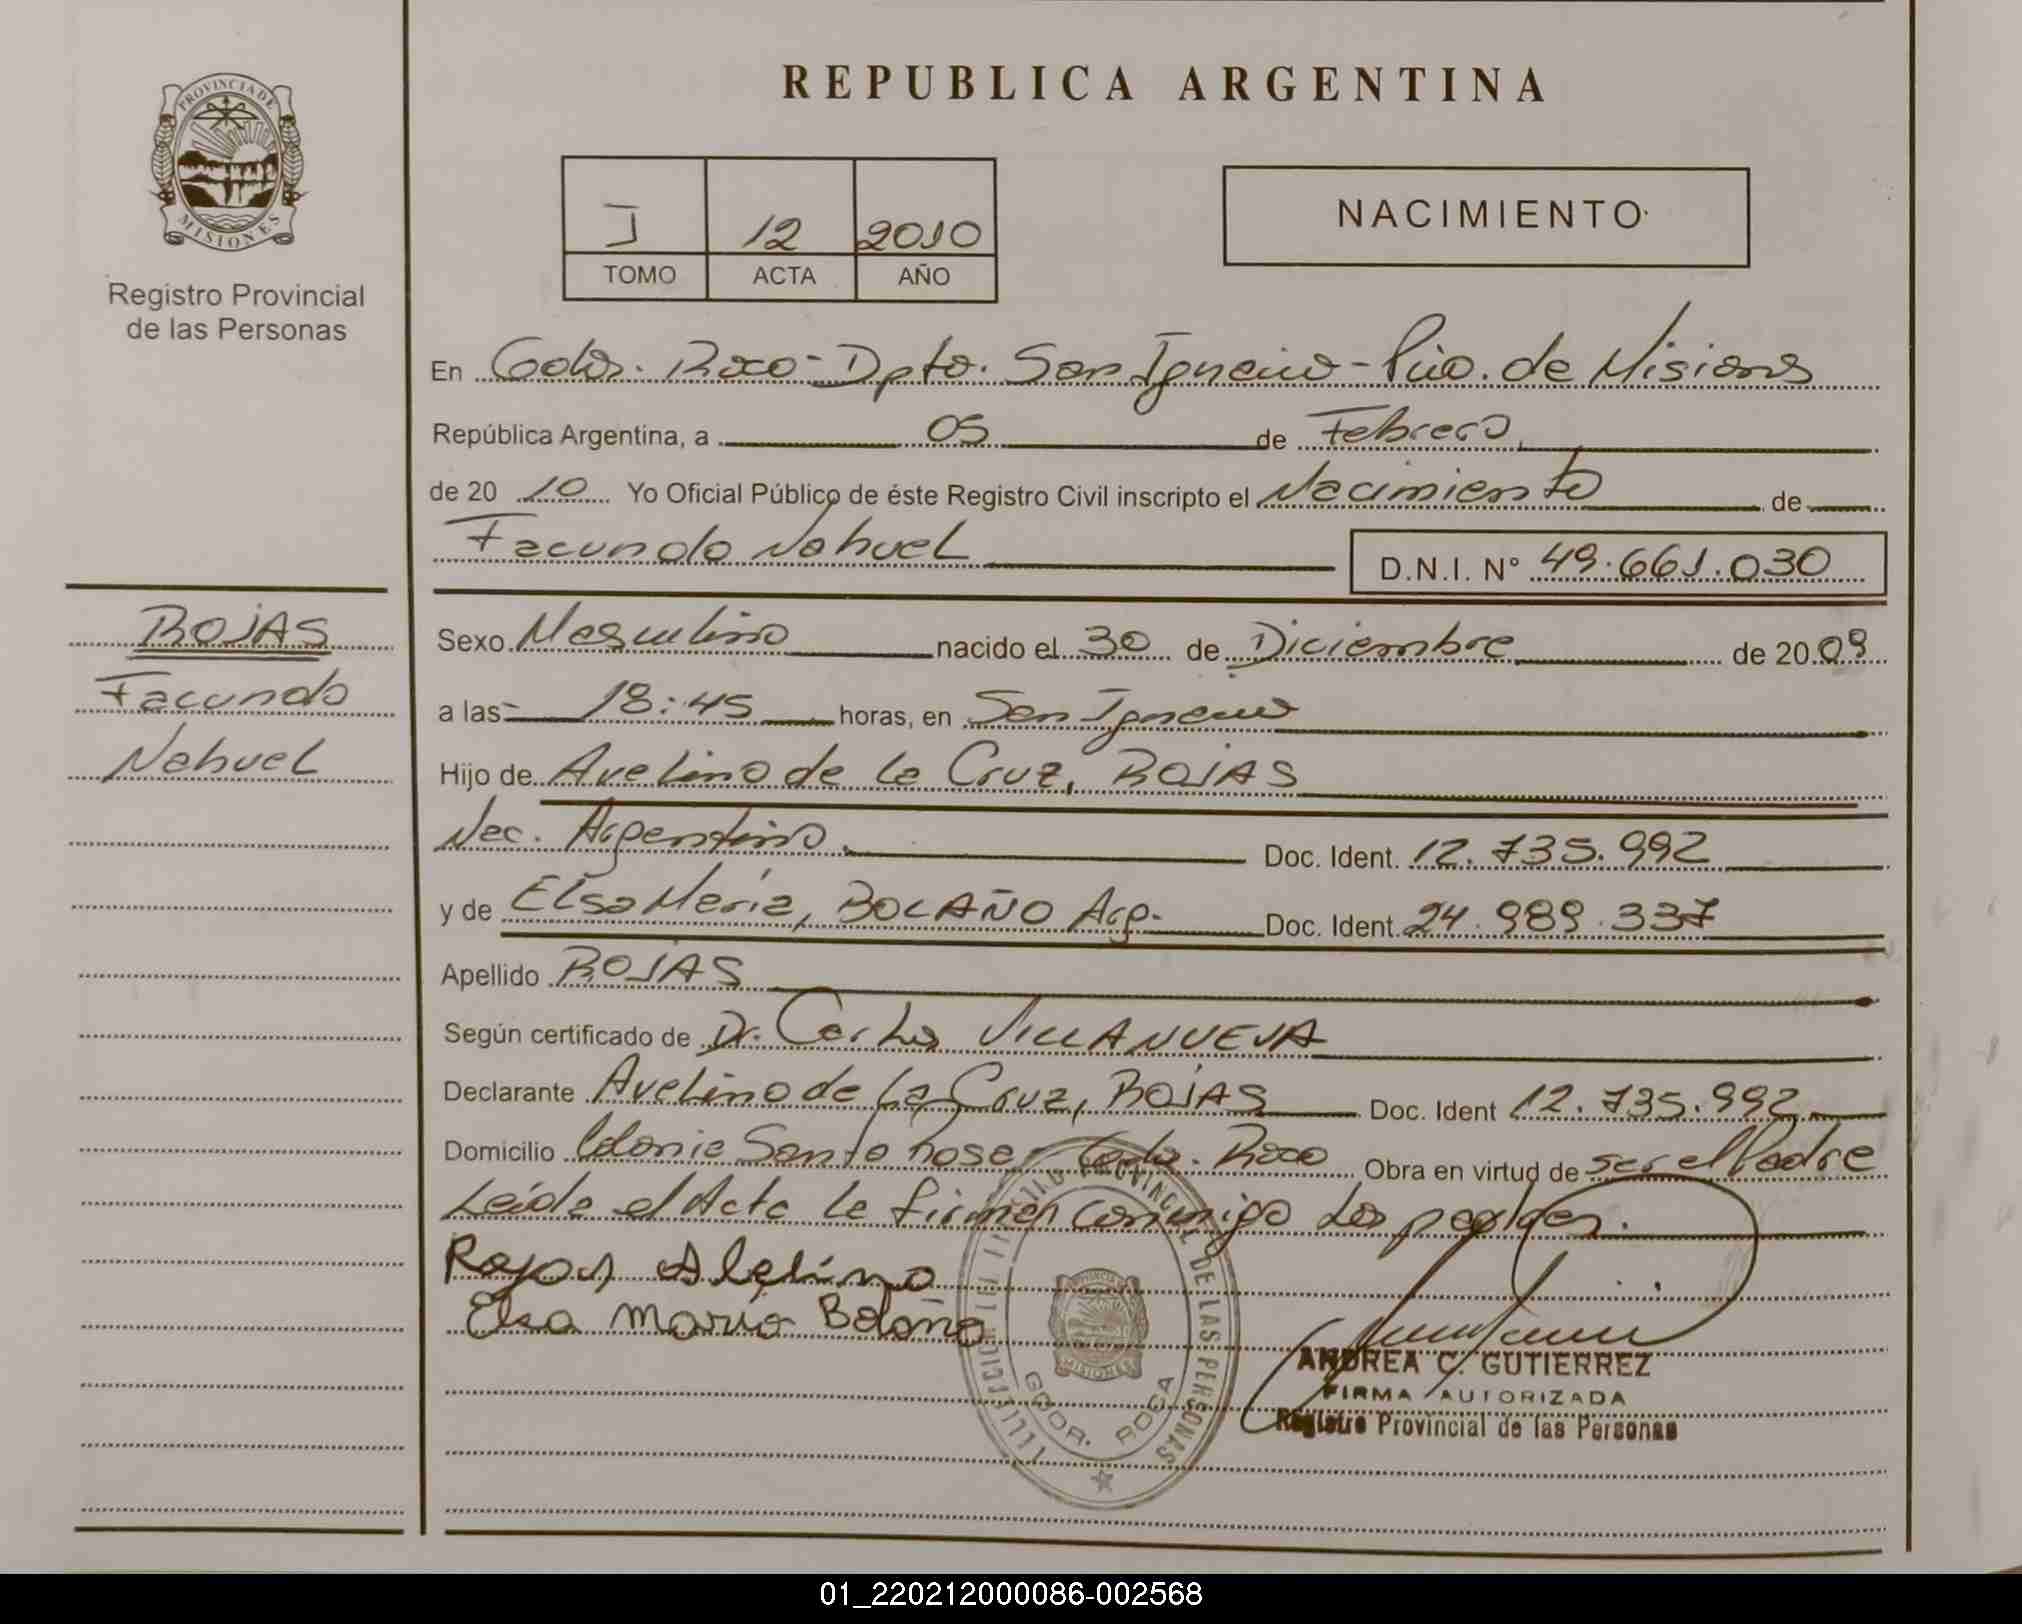 PROVINCIA DE
MISIONES
Registro Provincial
de las Personas
ROJAS
Facundo
Nahuel
REPUBLICA ARGENTINA
I 12 2010
TOMO ACTA AÑO
NACIMIENTO
En Gdor. Roca - Dpto. San Ignacio - Pcia. de Misiones
República Argentina, a 05 de Febrero
de 20 10 Yo Oficial Público de éste Registro Civil inscripto el Nacimiento de
Facundo Nahuel D.N.I. N° 49.661.030
Sexo Masculino nacido el 30 de Diciembre de 20 09
a las 18:45 horas, en San Ignacio
Hijo de Avelino de la Cruz, ROJAS
Nac. Argentino. Doc. Ident. 12.735.992
y de Elsa María, BOLAÑO Arg. Doc. Ident. 24.989.337
Apellido ROJAS
Según certificado de Dr. Carlos VILLANUEVA
Declarante Avelino de la Cruz, ROJAS Doc. Ident 12.735.992
Domicilio Colonia Santa Rosa, Gdor. Roca Obra en virtud de ser el Padre
Leída el Acta la firman conmigo los padres.
Rojas Avelino
Elsa Maria Bolaño
PROVINCIAL DE LAS PERSONAS
GDOR. ROCA
ANDREA C. GUTIERREZ
FIRMA AUTORIZADA
Registro Provincial de las Personas
01_220212000086-002568